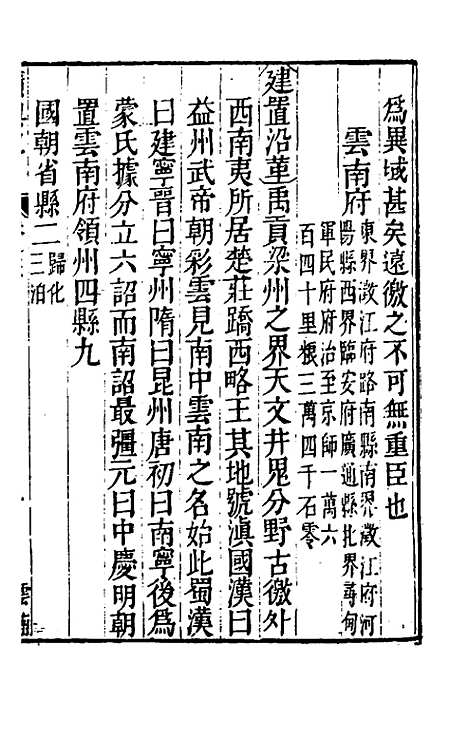 為異域甚矣遠徼之不可無重臣也
雲南府
東界澂江府路南縣南界澂江府河
陽縣西界臨安府廣通縣北界尋甸
軍民府府治至京師一萬六
百四十里糧三萬四千石零
建置沿革禹貢梁州之界天文井鬼分野古徼外
西南夷所居楚莊蹻西略王其地號滇國漢曰
益州武帝朝彩雲見南中雲南之名始此蜀漢
曰建寧晉曰寧州隋曰昆州唐初曰南寧後為
蒙氏據分立六詔而南詔最彊元曰中慶明朝
置雲南府領州四縣九
國朝省縣二
歸化
三泊
雲南